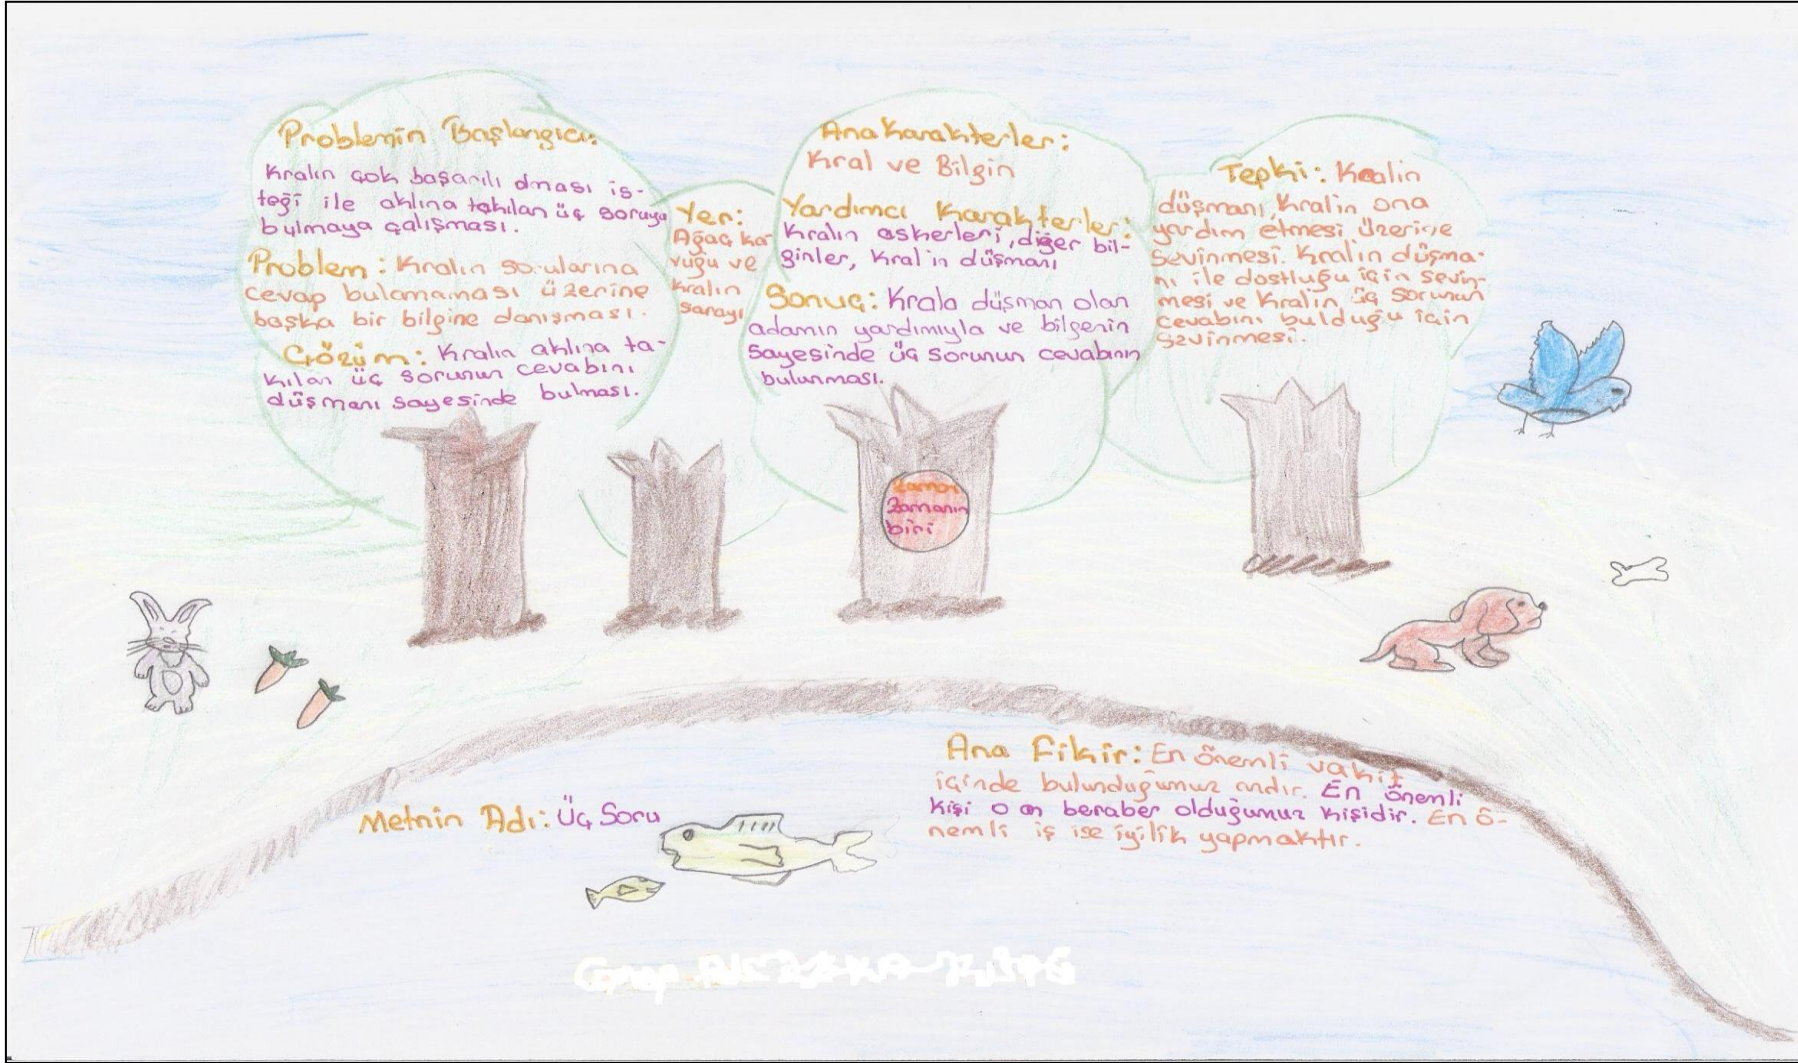 Problemin Başlangıcı:
Kralın çok başarılı olması is-
teği ile aklına takılan üç soruyu
bulmaya çalışması.
Problem: Kralın sorularına
cevap bulamaması üzerine
başka bir bilgine danışması.
Çözüm: Kralın aklına ta-
kılan üç sorunun cevabını
düşmanı sayesinde bulması.
Yer:
Ağaç ka-
vuğu ve
kralın
sarayı
Ana Karakterler:
Kral ve Bilgin
Yardımcı Karakterler:
Kralın askerleri, diğer bil-
ginler, Kral'ın düşmanı
Sonuç: Krala düşman olan
adamın yardımıyla ve bilgenin
sayesinde üç sorunun cevabının
bulunması.
Zamanın
biri
Tepki: Kralin
düşmanı, Kralin ona
yardım etmesi üzerine
sevinmesi. Kralın düşma-
nı ile dostluğu için sevin-
mesi ve Kralin üç sorunun
cevabını bulduğu için
sevinmesi.
Metnin Adı: Üç Soru
Ana Fikir: En önemli vakit
içinde bulunduğumuz andır. En önemli
kişi o an beraber olduğumuz kişidir. En ö-
nemli iş ise iyilik yapmaktır.
Grup